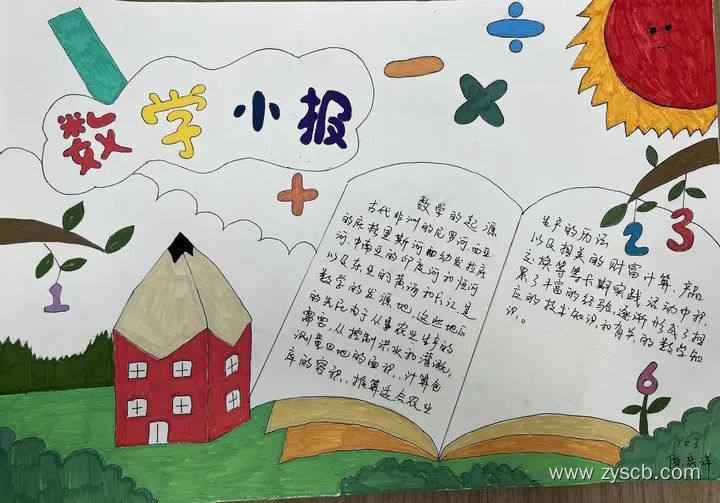 数学小报
数学的起源
古代非洲的尼罗河西亚
的底格里斯河和幼发拉底
河.中南亚的印度河和恒河
以及东亚的黄河和长江,是
数学的发源地,这些地区
的先民由于从事农业生产的
需要,从控制洪水和灌溉,
测量田地的面积、计算仓
库的容积、推算适合农业
生产的历法
以及相关的财富计算、产品
交换等等长期实践活动中积
累了丰富的经验,逐渐形成了相
应的技术知识和有关的数学知
识。
1
2
3
6
103
www.zyscb.com